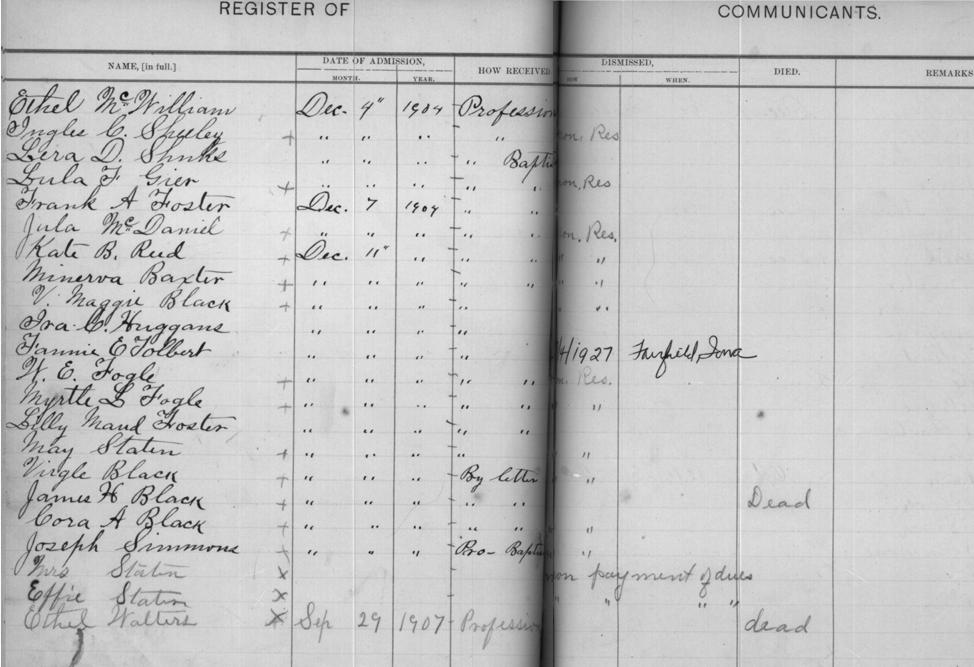 REGISTER OF COMMUNICANTS.
NAME, [in full.] DATE OF ADMISSION, HOW RECEIVED DISMISSED, DIED. REMARKS
MONTH. YEAR. HOW WHEN.
Ethel McWilliam Dec. 4" 1904 Profession
Ingles C. Sheeley + " " " " on, Res
Lera D. Shunks " " " " Baptis
Lula F Gier + " " " " " non, Res
Frank A Foster Dec. 7 1904 " "
Jula McDaniel + " " " " " on, Res.
Kate B. Reed + Dec. 11" " " " " "
Minerva Baxter + " " " " " " "
V. Maggie Black + " " " " " "
Ira C. Huggans " " " "
Fannie E Tolbert " " " " /4/1927 Fairfield, Iowa
W. E. Fogle + " " " " " on. Res.
Myrtle L Fogle + " " " " " "
Lilly Maud Foster " " " " "
May Staten + " " " " "
Virgle Black + " " " By letter "
James H Black + " " " " " Dead
Cora A Black + " " " " " "
Joseph Simmons + " " " Pro- Baptis "
Mrs Staten x non payment of dues
Effie Staten x " " " "
Ethel Walters x Sep 29 1907 Profession dead